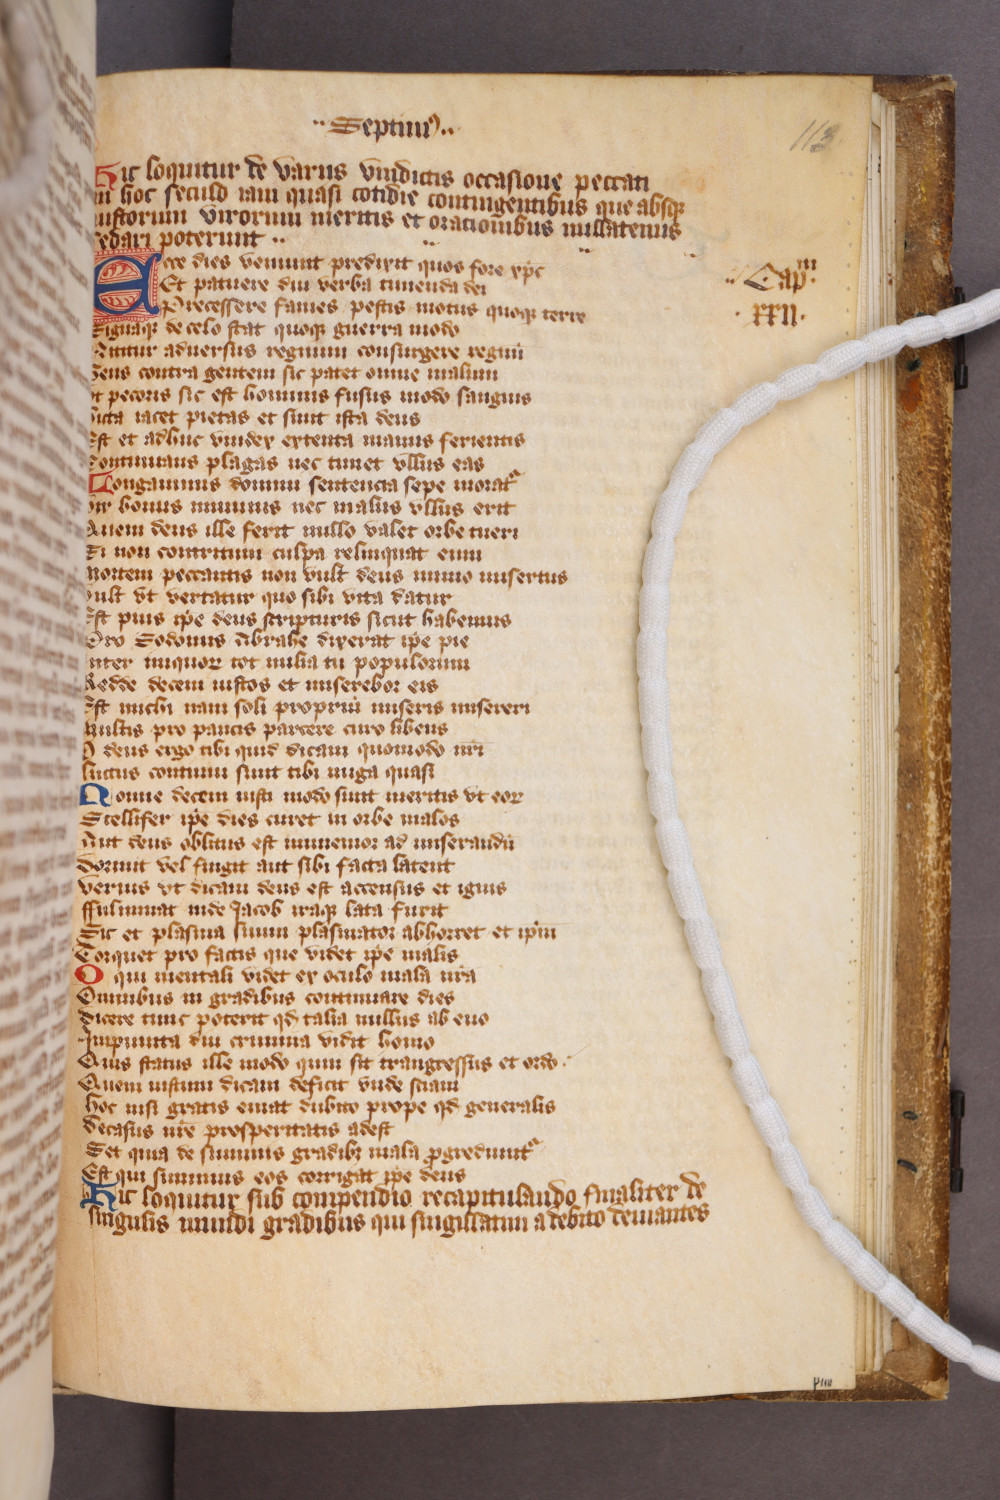 ·· Septimus ··
113
Hic loquitur de variis vindictis occasione peccati
in hoc seculo iam quasi cotidie contingentibus que absque
iustorum virorum meritis et oracionibus nullatenus
sedari poterunt ··
Ecce dies veniunt predixit quos fore xp̄c
Et patuere diu verba timenda dei
Precessere fames pestis motus quoque terre
Signaque de celo stat quoque guerra modo
Nititur aduersus regnum consurgere regnū
Gens contra gentem sic patet omne malum
Ut pecoris sic est hominis fusus modo sanguis
Victa iacet pietas et sunt ista deus
Est et adhuc vindex extenta manus ferientis
Continuans plagas nec timet vllus eas
Longanimis domini sentencia sepe moratr
Vir bonus inmunis nec malus vllus erit
Quem deus ille ferit nullo valet orbe tueri
Si non contritum culpa relinquat eum
Mortem peccantis non vult deus immo misertus
Vult vt vertatur quo sibi vita datur
Est pius ip̄e deus scripturis sicut habemus
Pro Sodomis Abrahe dixerat ip̄e pie
Inter iniquorum tot milia tu populorum
Redde decem iustos et miserebor eis
Est michi nam soli propriū miseris misereri
Multis pro paucis parcere curo libens
O deus ergo tibi quid dicam quomodo nr̄i
luctus continui sunt tibi nuga quasi
Nonne decem iusti modo sunt meritis vt eorum
Stellifer ip̄e dies curet in orbe malos
Aut deus oblitus est inmemor ad miserandū
dormit vel fingit aut sibi facta latent
verius vt dicam deus est accensus et ignis
ffulminat inde Jacob iraque lata furit
Sic et plasma suum plasmator abhorret et ip̄m
Torquet pro factis que videt ip̄e malis
O qui mentali videt ex oculo mala nr̄a
Omnibus in gradibus continuare dies
dicere tunc poterit qd talia nullus ab euo
Jmpunita diu crimina vidit homo
Quis status ille modo quin sit transgressus et ordo ·
Quem iustum dicam deficit vnde sciam
hoc nisi gratis emat dubito prope qd generalis
decasus nr̄e prosperitatis adest
Set quia de summis gradibz mala progrediuntr
Est qui summus eos corrigat ip̄e deus
Hic loquitur sub compendio recapitulando finaliter de
singulis mundi gradibus qui singillatim a debito deuiantes
·· Capm ·
· xxii ·